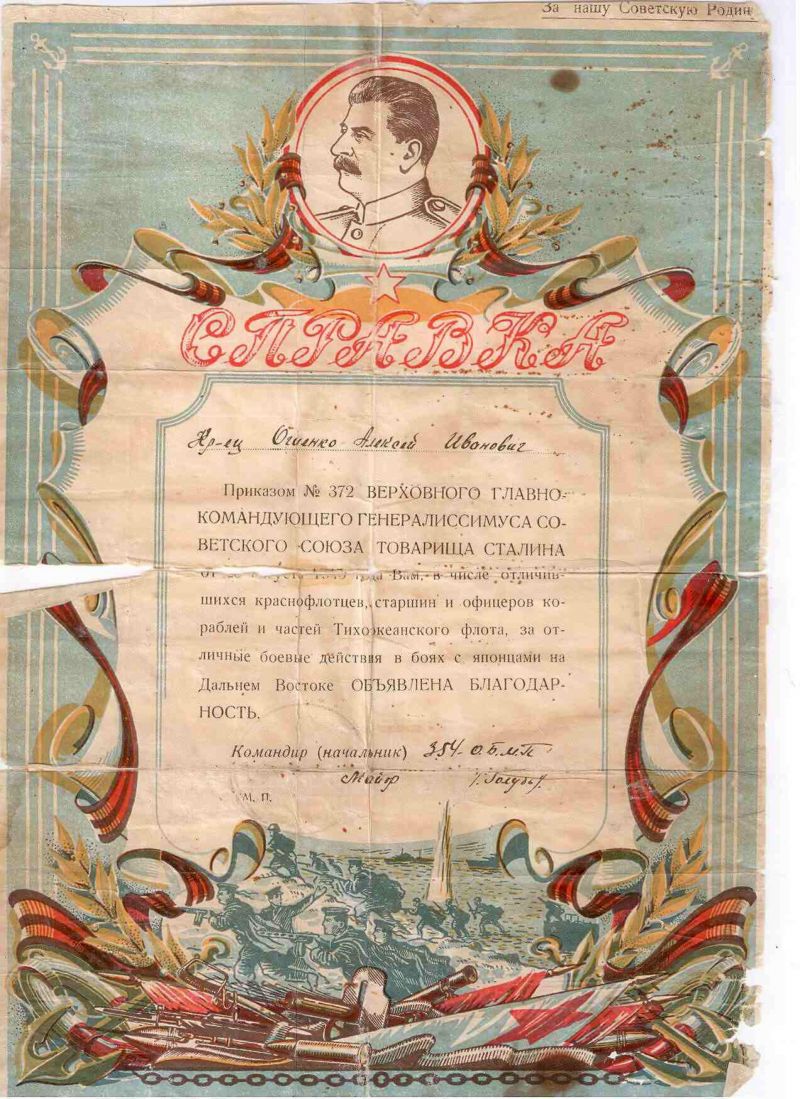 За нашу Советскую Родин
СПРАВКА
Кр-ец Огиенко Алексей Иванович
Приказом № 372 ВЕРХОВНОГО ГЛАВНО-
КОМАНДУЮЩЕГО ГЕНЕРАЛИССИМУСА СО-
ВЕТСКОГО СОЮЗА ТОВАРИЩА СТАЛИНА
года Вам, в числе отличив-
шихся краснофлотцев, старшин и офицеров ко-
раблей и частей Тихоокеанского флота, за от-
личные боевые действия в боях с японцами на
Дальнем Востоке ОБЪЯВЛЕНА БЛАГОДАР-
НОСТЬ.
Командир (начальник) 354 о.б.м.п.
Майор
М. П.